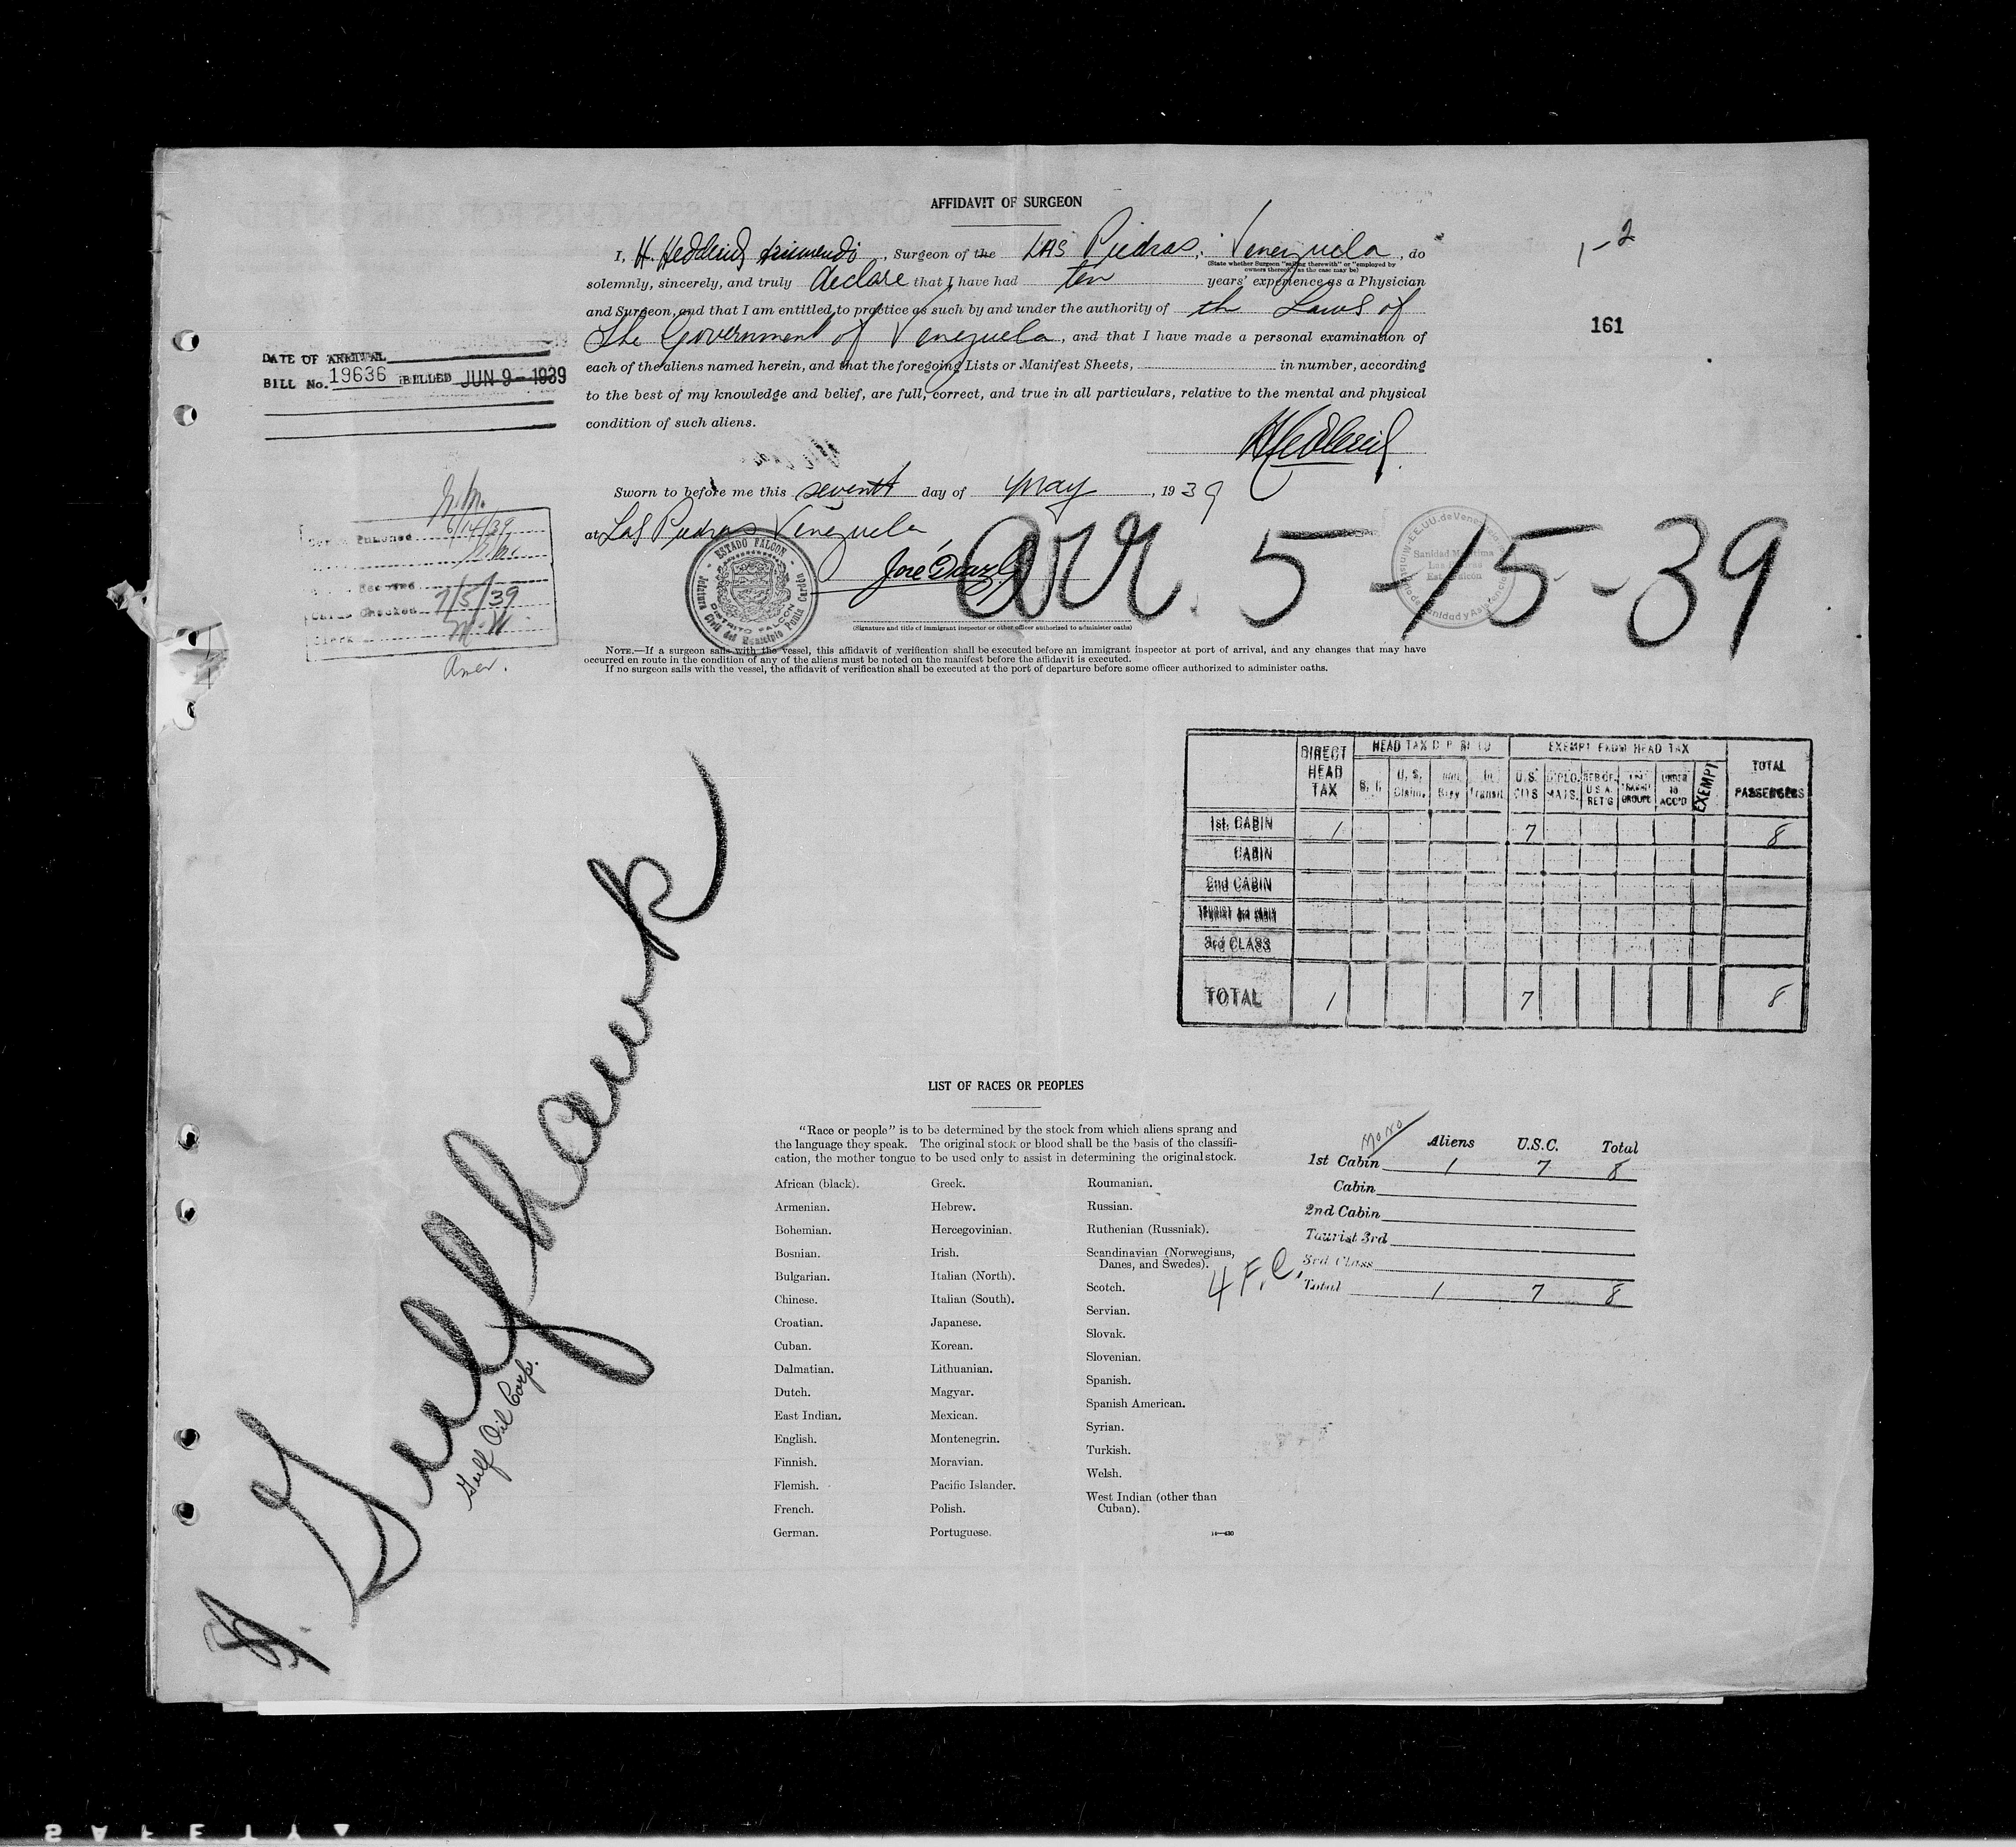 AFFIDAVIT OF SURGEON
I, H. , Surgeon of the LAS Piedras, Venezuela, do
(State whether Surgeon "sailing therewith" or "employed by
owners thereof," as the case may be)
solemnly, sincerely, and truly declare that I have had ten years' experience as a Physician
and Surgeon, and that I am entitled to practice as such by and under the authority of the Laws of
The Government of Venezuela, and that I have made a personal examination of
each of the aliens named herein, and that the foregoing Lists or Manifest Sheets, in number, according
to the best of my knowledge and belief, are full, correct, and true in all particulars, relative to the mental and physical
condition of such aliens.
1-2
161
DATE OF ARRIVAL
BILL No. 19636 BILLED JUN 9 - 1939
Sworn to before me this seventh day of May, 1939
at Las Piedras Venezuela
José Diaz G
(Signature and title of immigrant inspector or other officer authorized to administer oaths)
ESTADO FALCON
DISTRITO FALCON
Jefatura Civil del Municipio Punta Cardón
EE.UU. de Venezuela
Sanidad Maritima
Las Piedras
Est. Falcón
arr. 5-15-39
6/14/39
Cards Checked 7/5/39
Clerk
NOTE.—If a surgeon sails with the vessel, this affidavit of verification shall be executed before an immigrant inspector at port of arrival, and any changes that may have
occurred en route in the condition of any of the aliens must be noted on the manifest before the affidavit is executed.
If no surgeon sails with the vessel, the affidavit of verification shall be executed at the port of departure before some officer authorized to administer oaths.
DIRECT HEAD TAX
EXEMPT FROM HEAD TAX
TOTAL PASSENGERS
U. S. Claim. In Transit U.S. CITS DIPLO. MATS. UNDER 16 ACC'D EXEMPT
1st. CABIN 1 7 8
CABIN
2nd CABIN
3rd CLASS
TOTAL 1 7 8
Gulfhawk
Gulf Oil Corp.
LIST OF RACES OR PEOPLES
"Race or people" is to be determined by the stock from which aliens sprang and
the language they speak. The original stock or blood shall be the basis of the classifi-
cation, the mother tongue to be used only to assist in determining the original stock.
African (black).
Armenian.
Bohemian.
Bosnian.
Bulgarian.
Chinese.
Croatian.
Cuban.
Dalmatian.
Dutch.
East Indian.
English.
Finnish.
Flemish.
French.
German.
Greek.
Hebrew.
Hercegovinian.
Irish.
Italian (North).
Italian (South).
Japanese.
Korean.
Lithuanian.
Magyar.
Mexican.
Montenegrin.
Moravian.
Pacific Islander.
Polish.
Portuguese.
Roumanian.
Russian.
Ruthenian (Russniak).
Scandinavian (Norwegians,
Danes, and Swedes).
Scotch.
Servian.
Slovak.
Slovenian.
Spanish.
Spanish American.
Syrian.
Turkish.
Welsh.
West Indian (other than
Cuban).
MONO
Aliens U.S.C. Total
1st Cabin 1 7 8
Cabin
2nd Cabin
Tourist 3rd
3rd Class
Total 1 7 8
4 F.C.
SAFETY